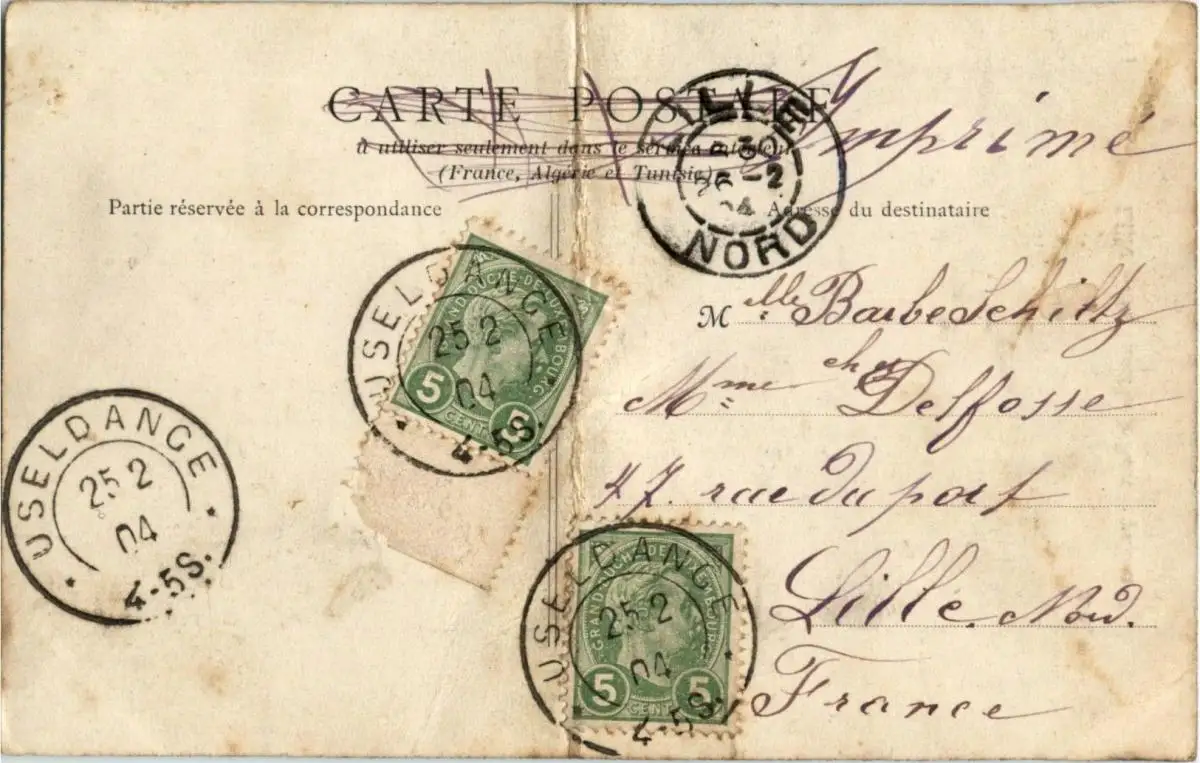 CARTE POSTALE
Imprimé
à utiliser seulement dans le service intérieur
(France, Algérie et Tunisie)
LILLE
3 30
26 - 2
04
NORD
Partie réservée à la correspondance
Adresse du destinataire
USELDANGE
25 2
04
4-5S.
GRAND-DUCHÉ-DE-LUXEMBOURG
5
5
CENT
Melle Barbe Schiltz
Mme Delfosse
47. rue du port
Lille. Nord.
France
USELDANGE
25 2
04
4-5S.
USELDANGE
25 2
04
4-5S.
GRAND-DUCHÉ-DE-LUXEMBOURG
5
5
CENT